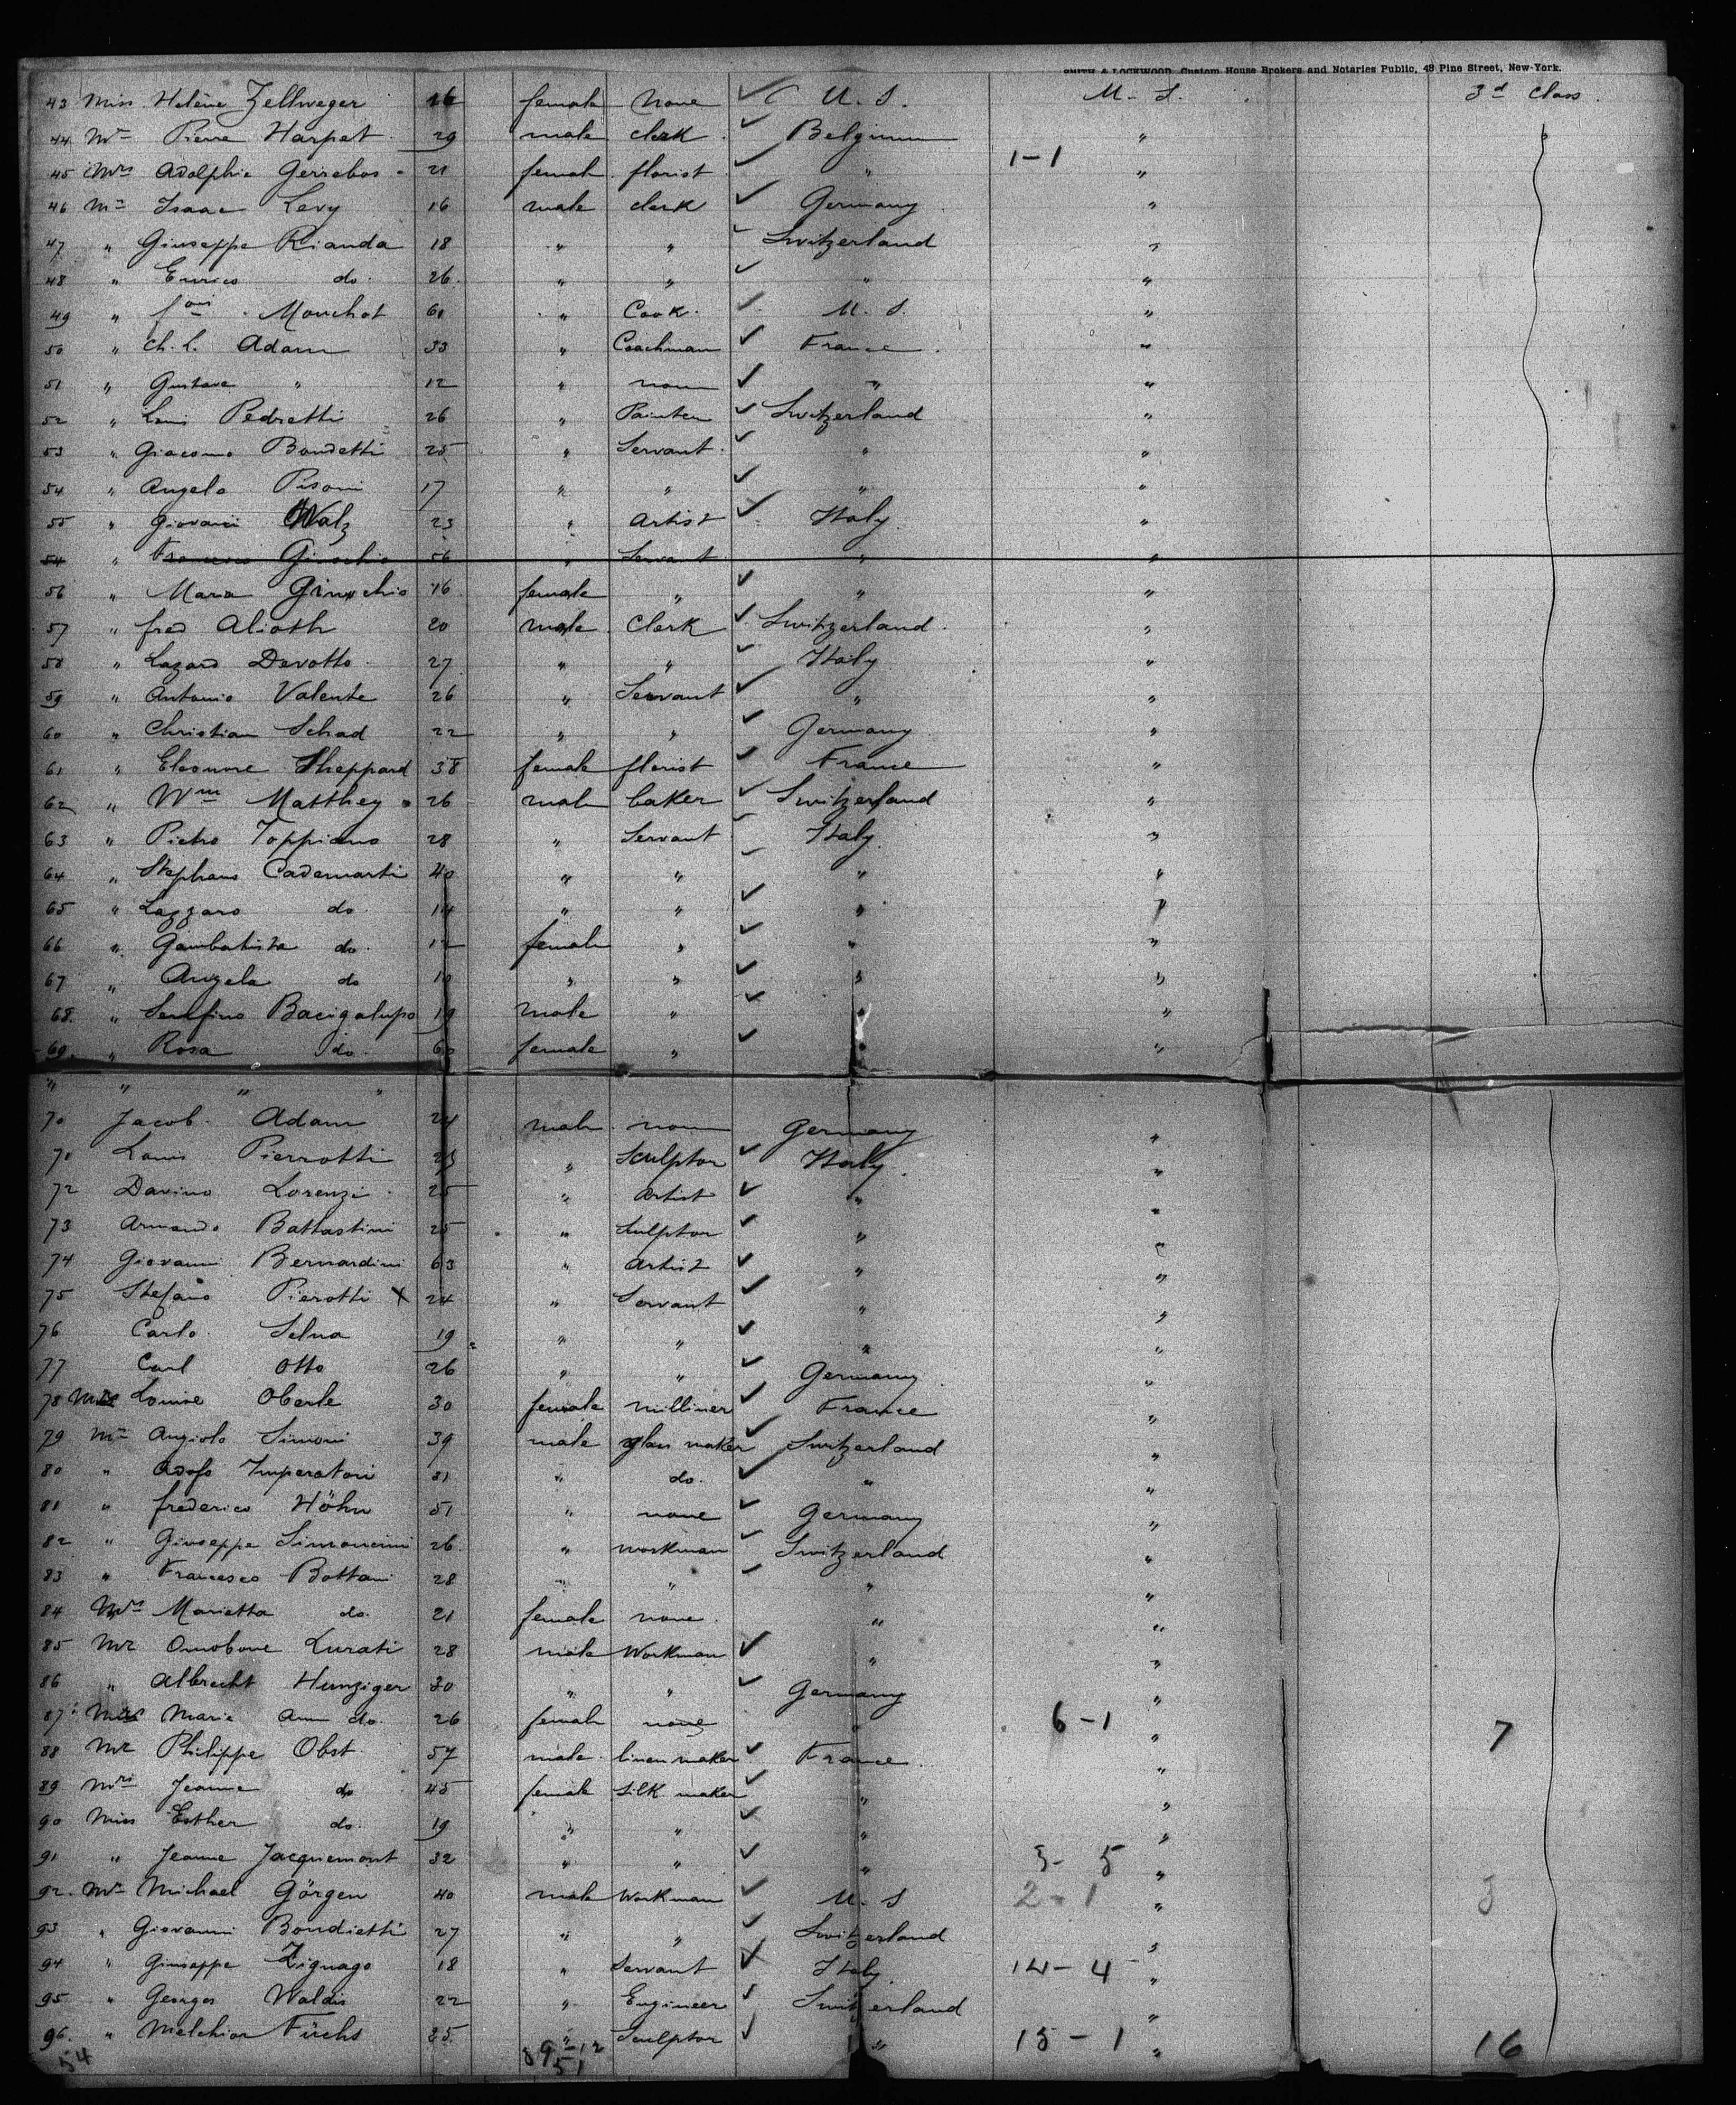 SMITH & LOCKWOOD, Custom House Brokers and Notaries Public, 48 Pine Street, New-York.
43 Miss Helène Zellweger 16 female None U. S. U. S. 3d Class
44 Mr Pierre Harpet 29 male clerk Belgium "
45 Mrs Adolphie Gerrebos 21 female florist " 1-1 "
46 Mr Isaac Levy 16 male clerk Germany "
47 " Giuseppe Rianda 18 " " Switzerland "
48 " Enrico do. 26 " " " "
49 " fois Mouchot 61 " Cook U. S. "
50 " Ch. L. Adam 33 " Coachman France "
51 " Gustave " 12 " none " "
52 " Louis Pedretti 26 " Painter Switzerland "
53 " Giacomo Bondetti 25 " Servant " "
54 " Angelo Pisoni 17 " " " "
55 " Giovani Walz 23 " Artist Italy "
54 " Francisco Ginochio 56 " Servant " "
56 " Maria Ginochio 16 female " " "
57 " fred Alioth 20 male Clerk Switzerland "
58 " Lazaro Devotto 27 " " Italy "
59 " Antonio Valente 26 " Servant " "
60 " Christian Schad 22 " " Germany "
61 " Eleonore Sheppard 38 female florist France "
62 " Wm Matthey 26 male baker Switzerland "
63 " Pietro Toppiano 28 " Servant Italy "
64 " Stephano Cademarti 40 " " " "
65 " Lazzaro do 14 " " " "
66 " Gambatista do. 12 female " " "
67 " Angela do 10 " " " "
68. " Serafino Bacigalupo 19 male " " "
69. " Rosa do. 60 female " "
" " " "
70 Jacob Adam 24 male none Germany "
70 Louis Pierrotti 23 " Sculptor Italy "
72 Davino Lorenzi 25 " Artist " "
73 Armando Battastini 25 " Sculptor " "
74 Giovanni Bernardini 63 " Artist " "
75 Stefano Pierotti X 24 " Servant " "
76 Carlo Selna 19 " " " "
77 Carl Otto 26 " " Germany "
78 Louise Oberle 30 female milliner France "
79 Mr Angiolo Simoni 39 male glass maker Switzerland "
80 " Adofo Imperatori 31 " do. " "
81 " frederico Höhn 51 " none Germany "
82 " Giuseppe Simoncini 26 " workman Switzerland "
83 " Francesco Bottani 28 " " " "
84 Mrs Marietta do. 21 female none " "
85 Mr Omobone Lurati 28 male Workman " "
86 " Albrecht Hunziger 30 " " Germany "
87 Mrs Marie Ann do. 26 female none " 6-1 " 7
88 Mr Philippe Obst 57 male linen maker France "
89 Mrs Jeanne do 45 female Silk maker " "
90 Miss Esther do. 19 " " " "
91 " Jeanne Jacquemont 32 " " " 3-5 "
92. Mr Michael Görgen 40 male Workman U. S 2-1 " 3
93 " Giovanni Bondietti 27 " " Switzerland "
94 " Giuseppe Zignago 18 " Servant Italy. 14-4 "
95 " Georges Waldis 22 " Engineer Switzerland "
96. " Melchior Füchs 25 " Sculptor " 15-1 " 16
54 39-12
51